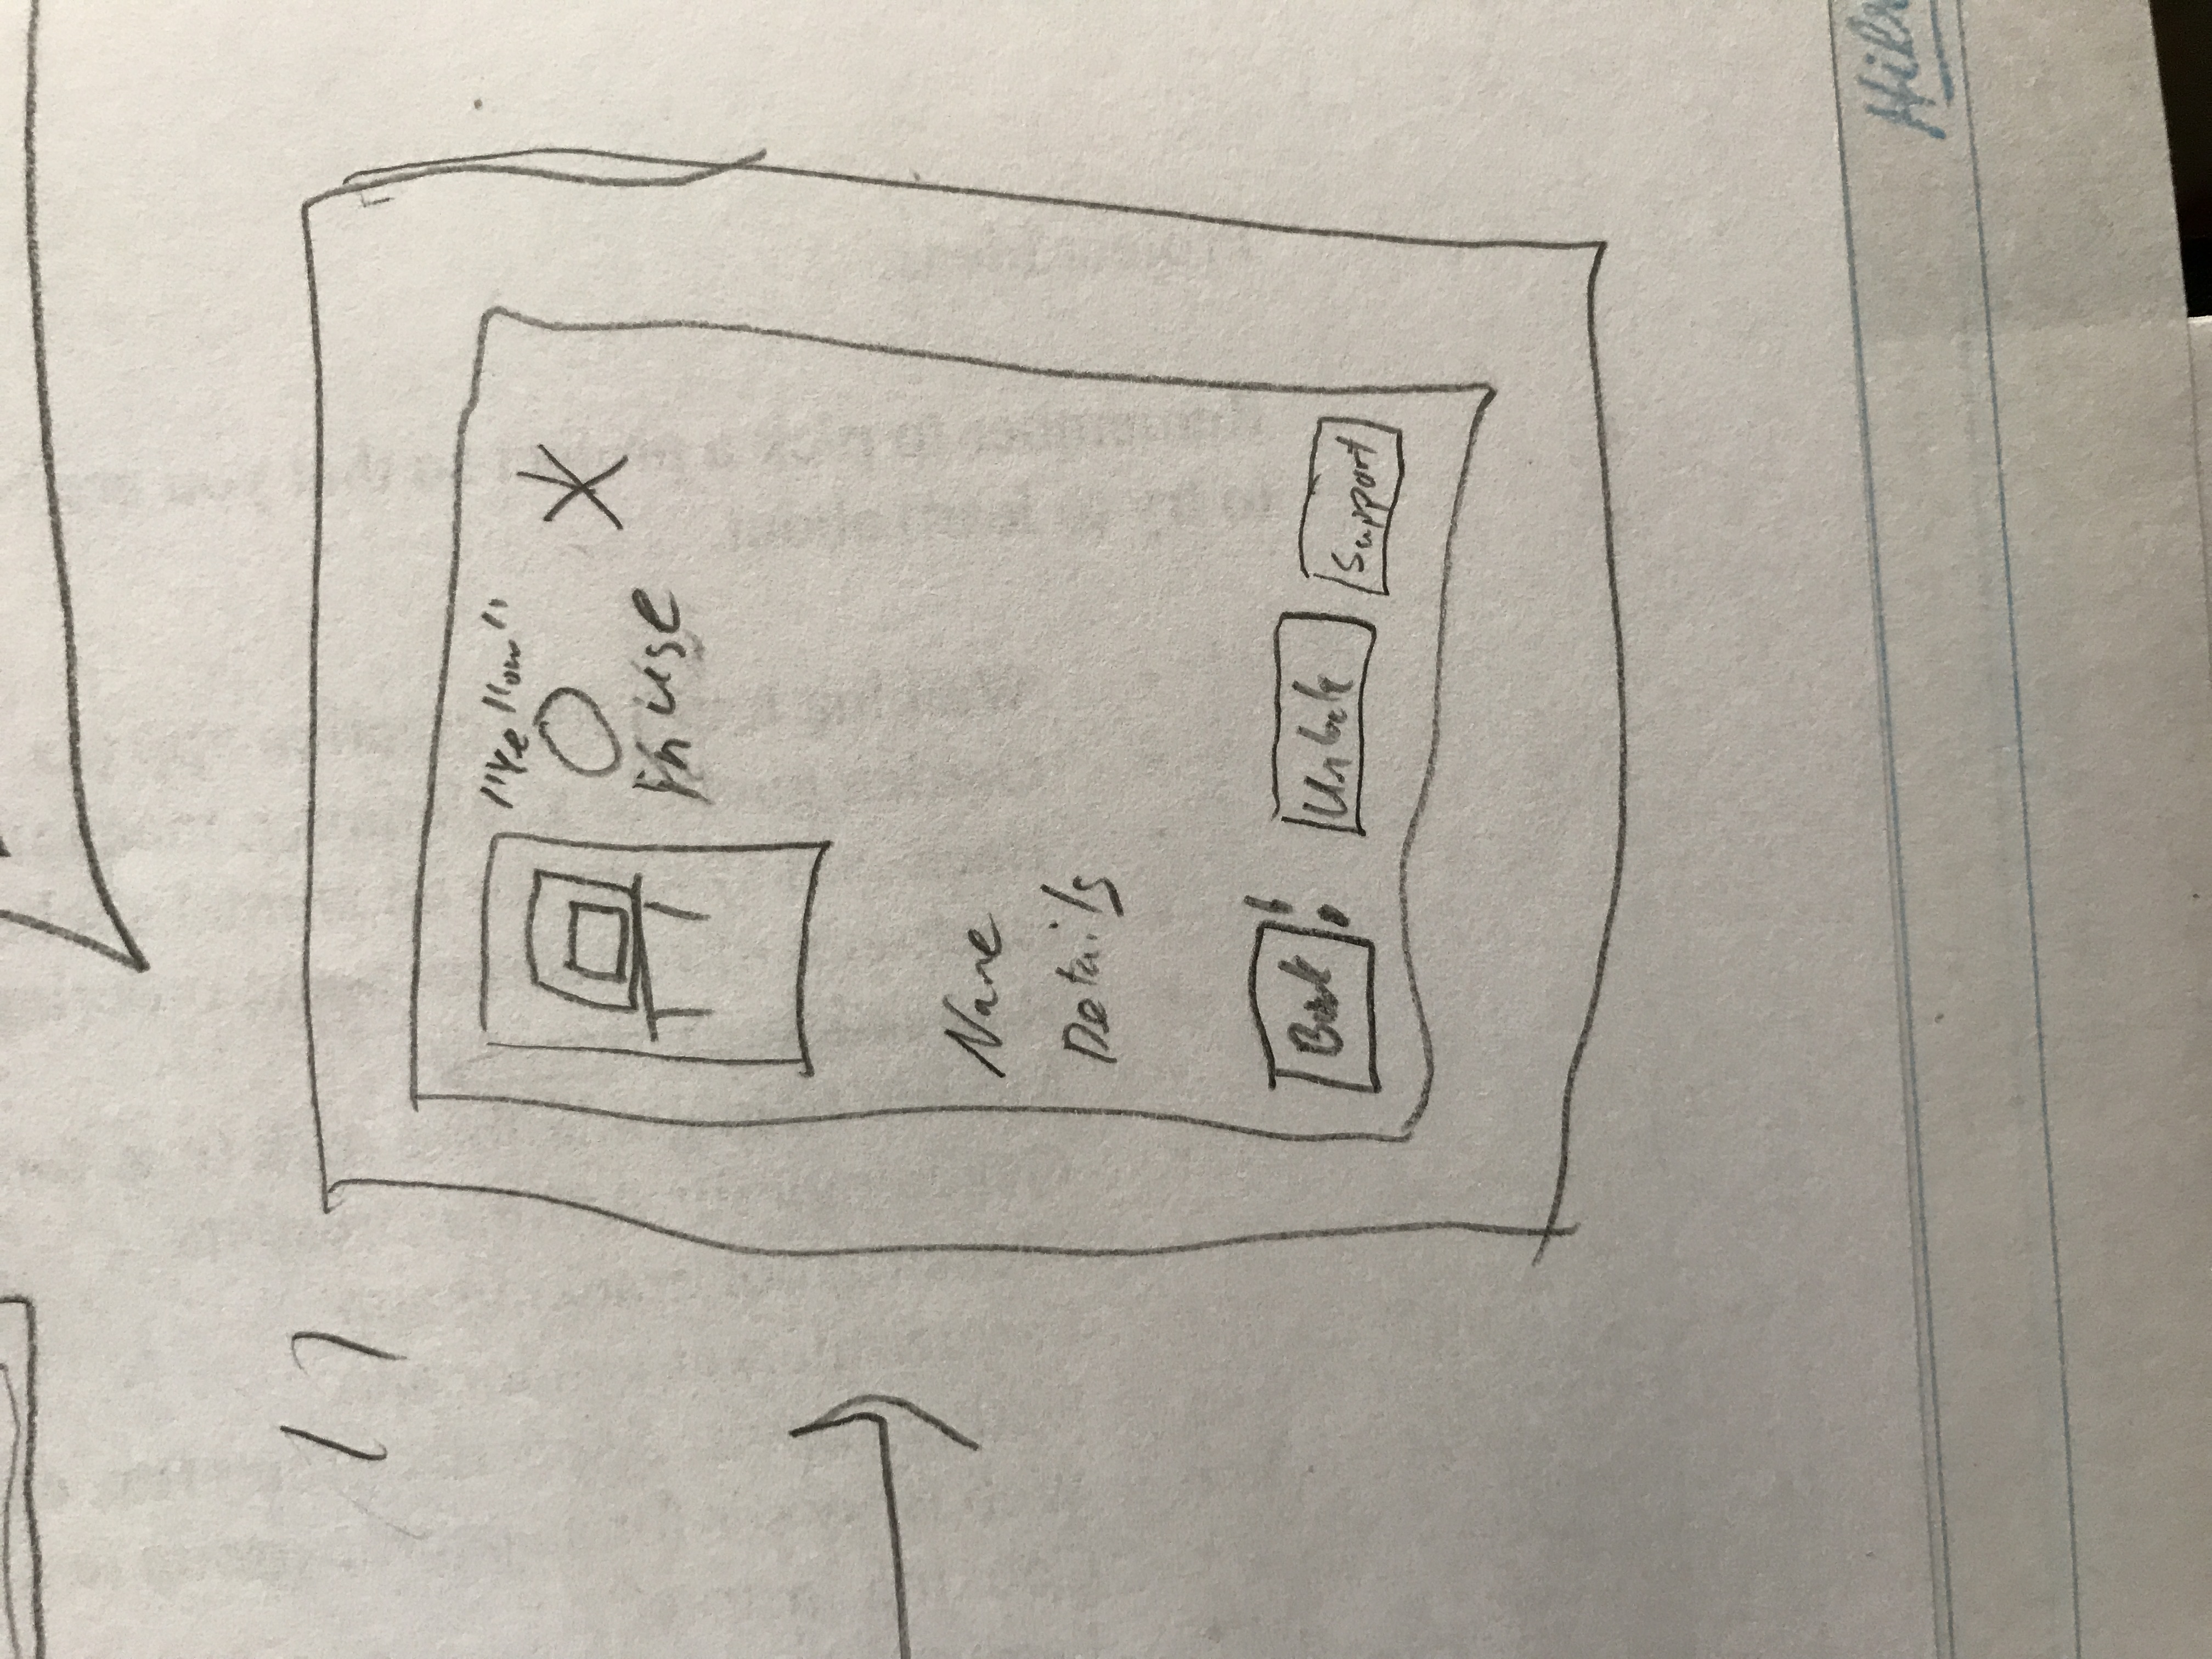 "Yellow"
in use
Name
Details
Book
Unlock
Support